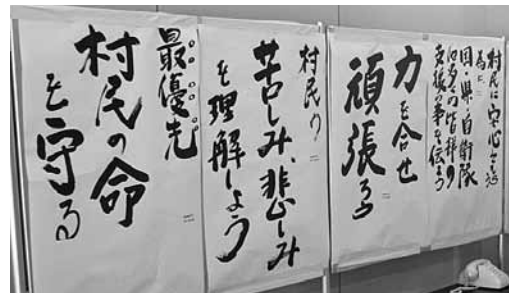 村民に安心を送る
為に、
国・県・自衛隊
支援の事を伝そう
力を合せ
頑張ろう
村民の、
苦しみ、悲しみ
を理解しよう
最優先
村民の命
を守る